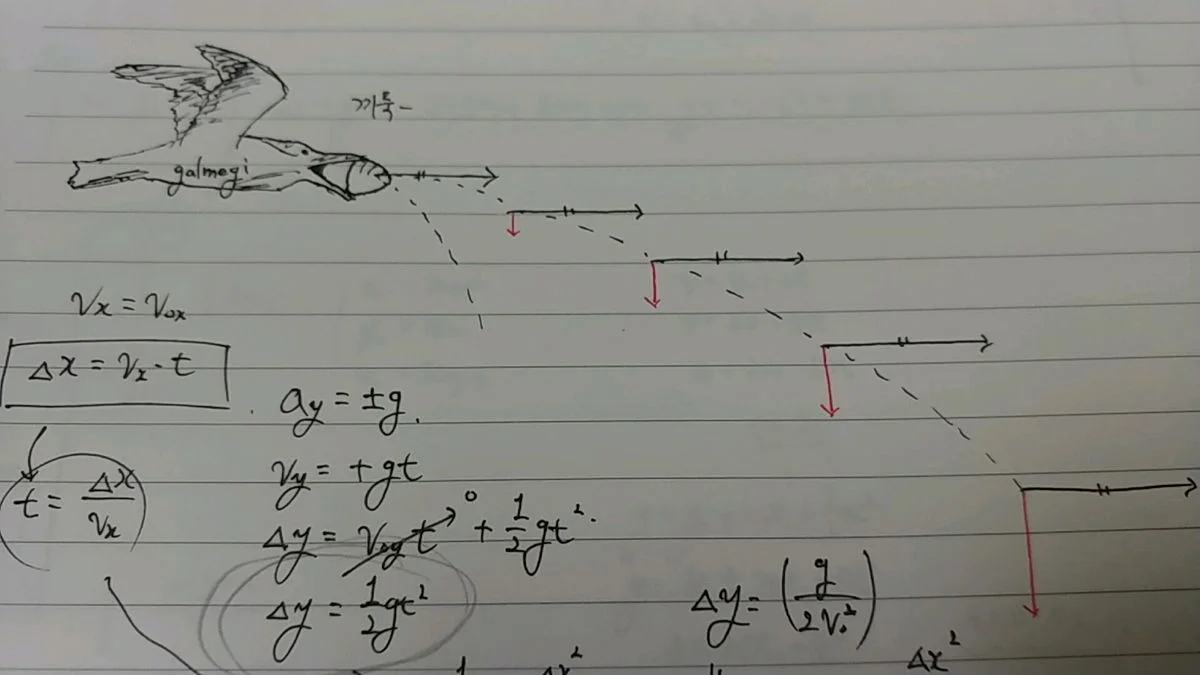 끼룩-
galmegi
Vx = V₀x
Δx = Vx · t
t = Δx/Vx
ay = ±g.
Vy = +gt
Δy = V₀y t → 0 + 1/2 gt².
Δy = 1/2 gt²
Δy = (g/2V₀²)
Δx²
1 Δx²